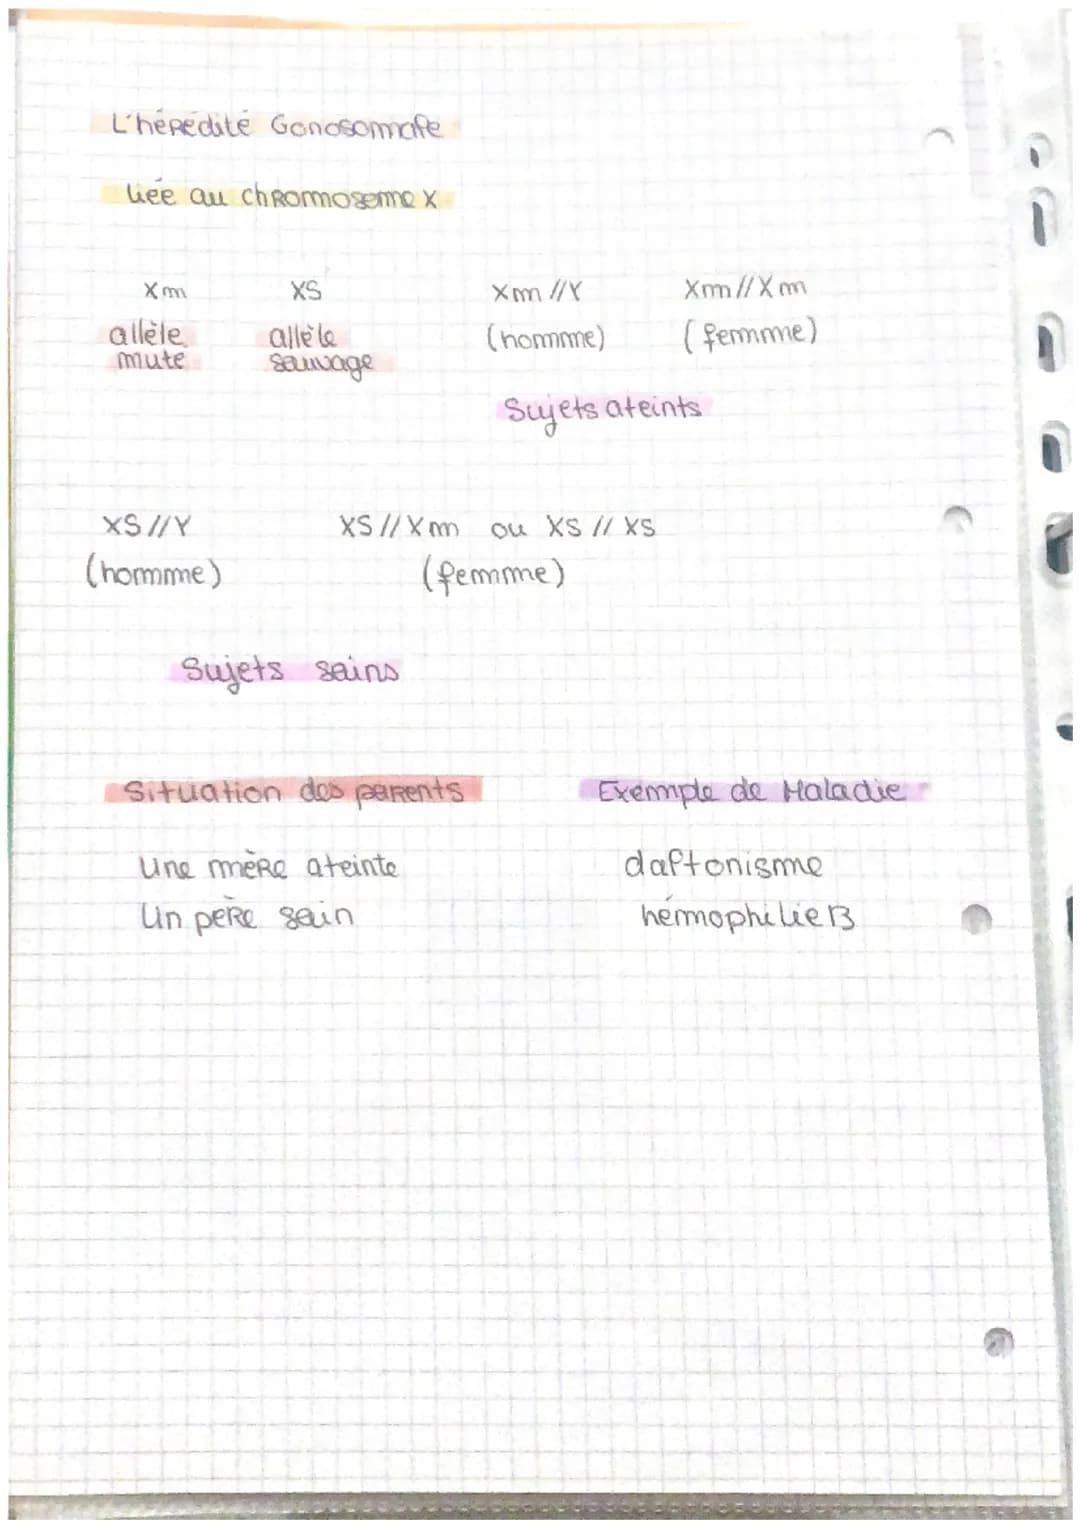 L'hérédité Gonosomale
liée au chRomosome X
Xm XS Xm//Y Xm//Xm
allèle allèle (homme) (femme)
mute sauvage
Sujets ateints
XS//Y XS//Xm ou XS // XS
(homme) (femme)
Sujets sains
Situation des paRents Exemple de Maladie
Une mèRe ateinte daltonisme
Un pèRe sain hémophilie B